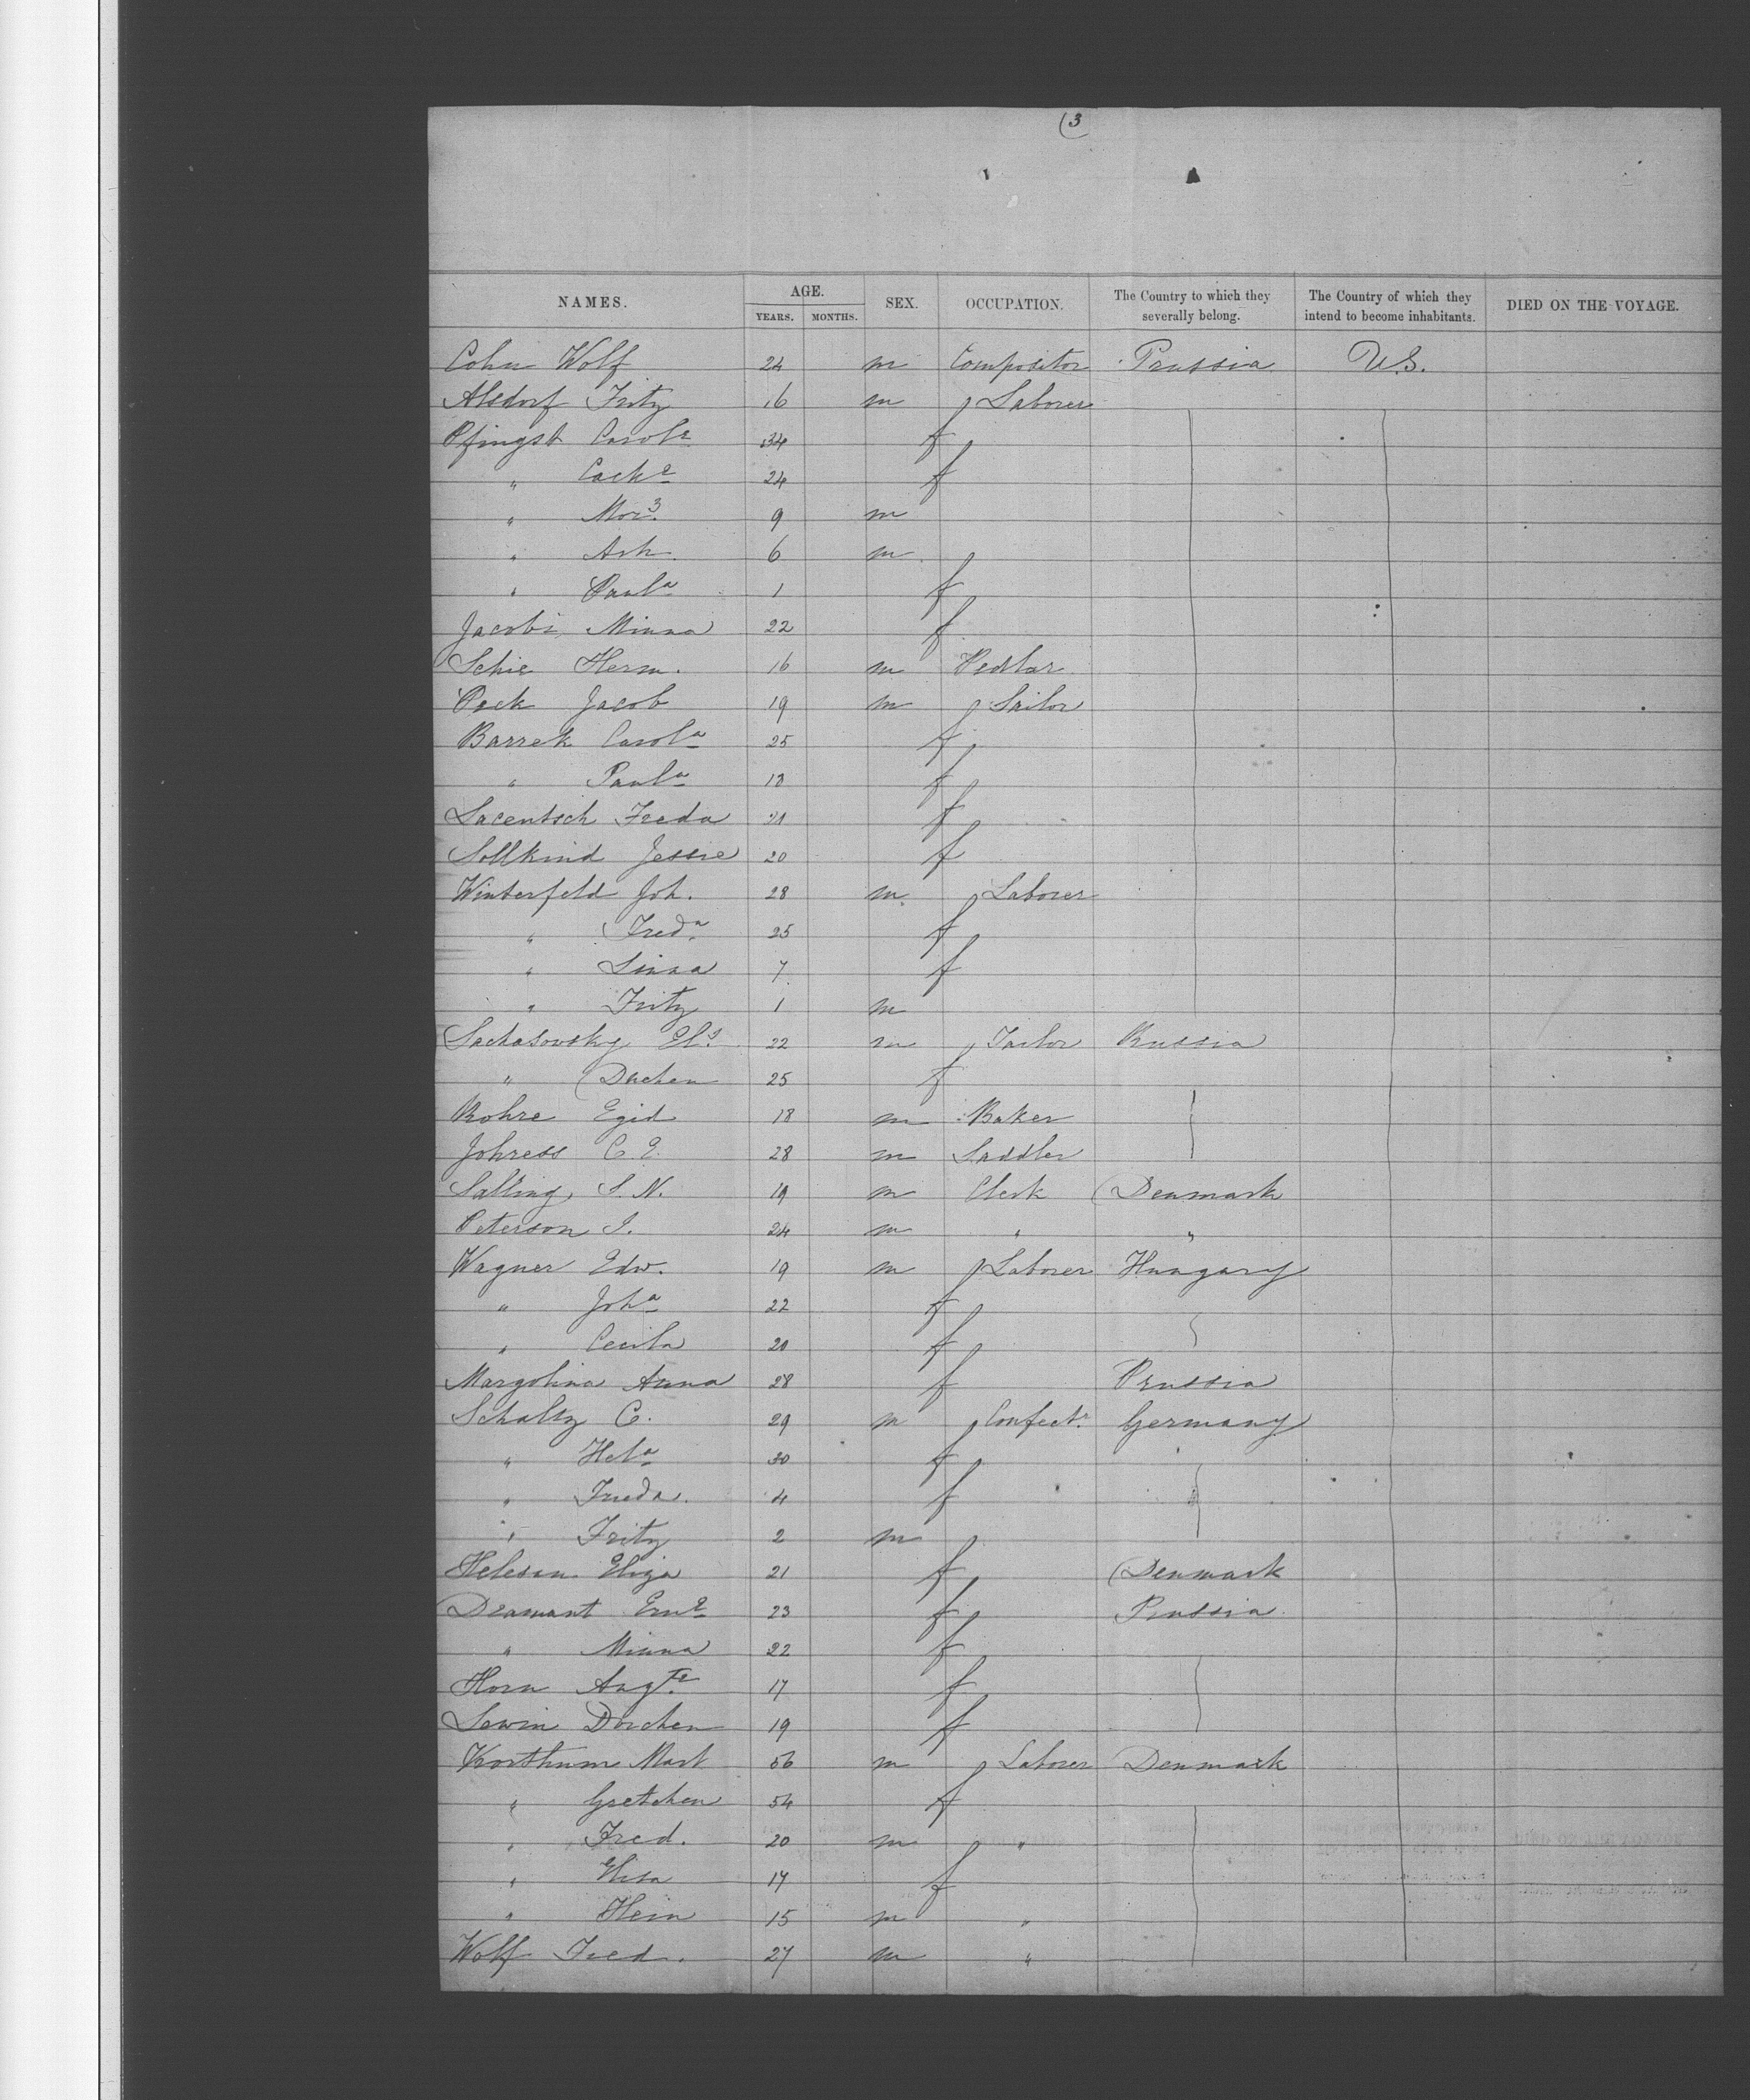 (3
NAMES. AGE. YEARS. MONTHS. SEX. OCCUPATION. The Country to which they severally belong. The Country of which they intend to become inhabitants. DIED ON THE VOYAGE.
Cohn Wolf 24 m Compositor Prussia U.S.
Alsdorf Fritz 16 m Laborer
Pfingst Carole 34 f
" 24 f
" Mor 9 m
" Ash 6 m
" Paula 1 f
Jacobi, Minna 22 f
Schie Herm. 16 m Pedlar
Peck Jacob 19 m Sailor
Barrek Carola 25 f
" Paula 18 f
Lacentsch Freda 21 f
Sollkind Jessie 20 f
Winterfeld Joh. 28 m Laborer
" Freda 25 f
" Linna 7 f
" Fritz 1 m
Sachasovsky 22 m Tailor Russia
" Dachen 25 f
Rohre Egid 18 m Baker
Johress C. E. 28 m Saddler
Salling, S. N. 19 m Clerk Denmark
Peterson I. 24 m " "
Wagner Edw. 19 m Laborer Hungary
" Joha 22 f
" Cecila 20 f
Margolina Anna 28 f Prussia
Schultz C. 29 m Confectr Germany
" Hela 30 f
" Frieda. 4 f
" Fritz 2 m
Helesen Eliza 21 f Denmark
Deamant Erne 23 f Prussia
" Minna 22 f
Horn Augte 17 f
Lewin Dorchen 19 f
Korthum Mart 56 m Laborer Denmark
" Gretchen 54 f
" Fred. 20 m "
" Elisa 17 f
" Hein 15 m "
Wolf Fred. 27 m "